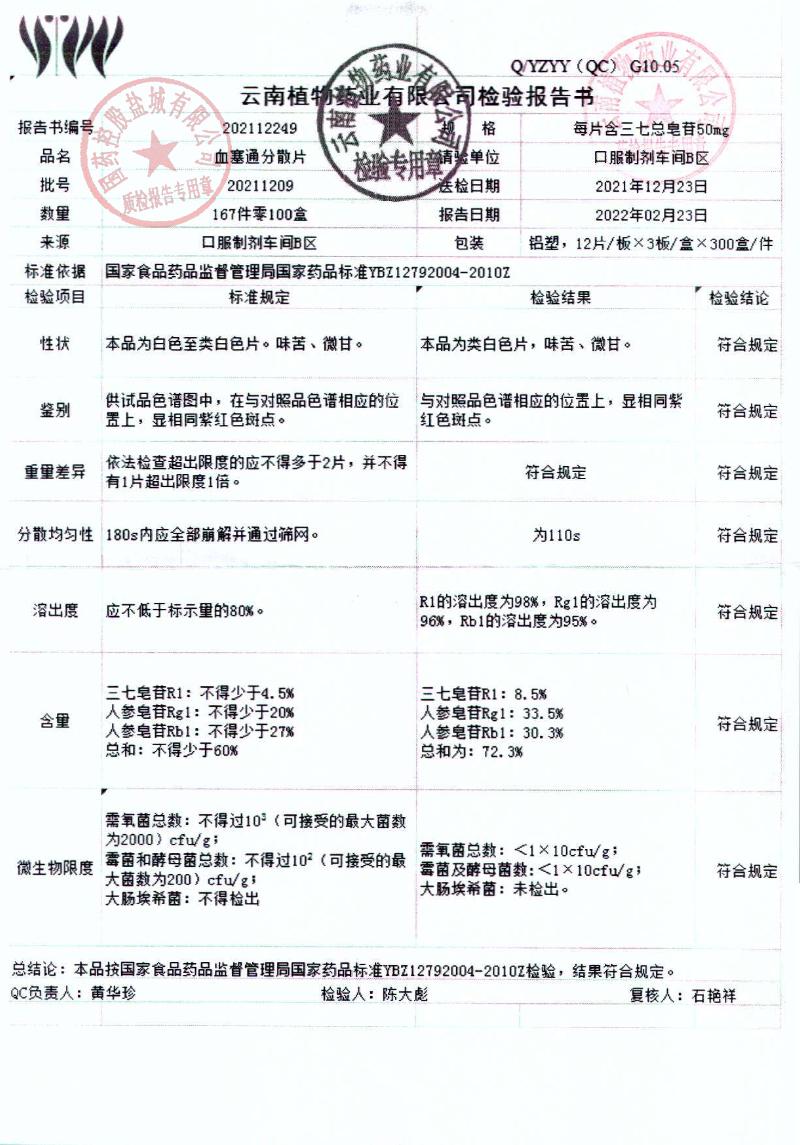 Q/YZYY（QC） G10.05
云南植物药业有限公司检验报告书
报告书编号 202112249 规 格 每片含三七总皂苷50mg
品名 血塞通分散片 请验单位 口服制剂车间B区
批号 20211209 送检日期 2021年12月23日
数量 167件零100盒 报告日期 2022年02月23日
来源 口服制剂车间B区 包装 铝塑，12片/板×3板/盒×300盒/件
标准依据 国家食品药品监督管理局国家药品标准YBZ12792004-2010Z
检验项目 标准规定 检验结果 检验结论
性状 本品为白色至类白色片。味苦、微甘。 本品为类白色片，味苦、微甘。 符合规定
鉴别 供试品色谱图中，在与对照品色谱相应的位
置上，显相同紫红色斑点。 与对照品色谱相应的位置上，显相同紫
红色斑点。 符合规定
重量差异 依法检查超出限度的应不得多于2片，并不得
有1片超出限度1倍。 符合规定 符合规定
分散均匀性 180s内应全部崩解并通过筛网。 为110s 符合规定
溶出度 应不低于标示量的80%。 R1的溶出度为98%，Rg1的溶出度为
96%，Rb1的溶出度为95%。 符合规定
含量 三七皂苷R1：不得少于4.5%
人参皂苷Rg1：不得少于20%
人参皂苷Rb1：不得少于27%
总和：不得少于60%
三七皂苷R1：8.5%
人参皂苷Rg1：33.5%
人参皂苷Rb1：30.3%
总和为：72.3%
符合规定
微生物限度 需氧菌总数：不得过10³（可接受的最大菌数
为2000）cfu/g；
霉菌和酵母菌总数：不得过10²（可接受的最
大菌数为200）cfu/g；
大肠埃希菌：不得检出
需氧菌总数：＜1×10cfu/g；
霉菌及酵母菌数：＜1×10cfu/g；
大肠埃希菌：未检出。
符合规定
总结论：本品按国家食品药品监督管理局国家药品标准YBZ12792004-2010Z检验，结果符合规定。
QC负责人：黄华珍 检验人：陈大彪 复核人：石艳祥
国药控股盐城有限公司
质检报告专用章
云南植物药业有限公司
检验专用章